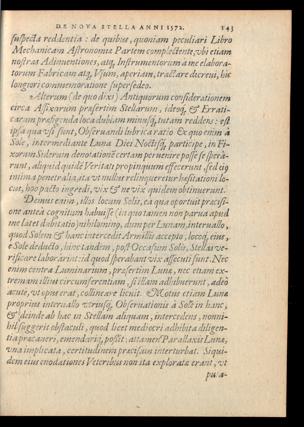 DE NOVA STELLA ANNI 1572. 543
suspecta reddentia : de quibus, quoniam peculiari Libro
Mechanicam Astronomiæ Partem complectente, vbi etiam
nostras Adinuentiones, atq́; Instrumentorum à me elabora-
torum Fabricam atq́; Vsum, aperiam, tractare decreui, hic
longiori commemoratione supersedeo.
Alterum (de quo dixi) Antiquorum considerationem
circa Affixarum præsertim Stellarum, ideoq́; & Errati-
carum præsgenda loca dubiam minusq́; tutam reddens: est
ipsa qua vsi sunt, Obseruandi lubrica ratio. Ex quo enim à
Sole, intermediante Luna Diei Noctisq́; participe, in Fi-
xorum Siderum denotatione certam peruenire posse se spera-
runt, aliquid quidẽ Veritati propinquum effecerunt, sed eo
intima penetralia, ita vt nullæ relinqueretur hæsitationi lo-
cus, hoc pacto ingredi, vix & ne vix quidem obtinuerunt.
Demus enim, illos locum Solis, ea qua oportuit præcisi-
one antea cognitum habuisse (in quo tamen non parua apud
me latet dubitatio) nihilominus, dum per Lunam, interuallo,
quod Solem & hanc intercedit, Armillis accepto, locoq́; eius,
e Sole deducto, hinc tandem, post Occasum Solis, Stellas ve-
rificare laborarint: id quod sperabant vix assecuti sunt. Nec
enim centra Luminarium, præsertim Lunæ, nec etiam ex-
tremam illius circumferentiam, si illam adhibuerunt, adeò
acutè, vt opus erat, collineare licuit. Motus etiam Lunæ
proprius interuallo vtriusq́; Obseruationis à Sole in hanc,
& deinde ab hac in Stellam aliquam, intercedens, nonni-
hil suggerit obstaculi, quod licet mediocri adhibita diligen-
tia præcaueri, emendariq́; possit: attamen Parallaxis Lunæ,
vna implicata, certitudinem præcisam interturbat. Siqui-
dem eius enodationes Veteribus non ita explorata erant, vt